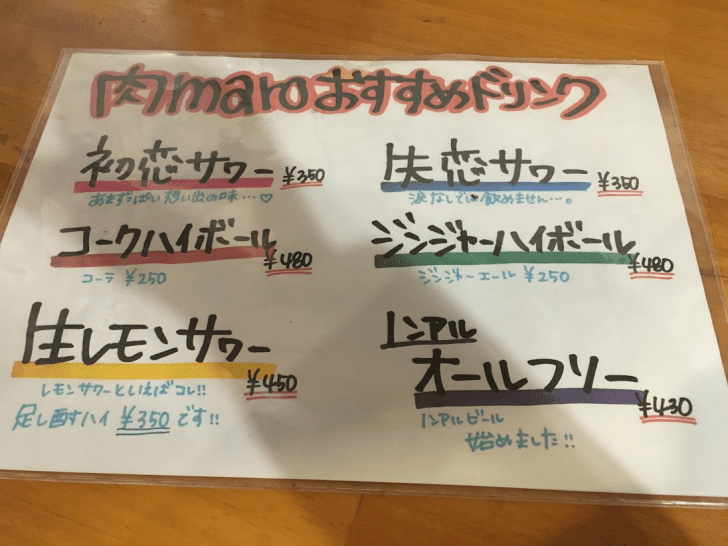 肉maroおすすめドリンク
初恋サワー ¥350
あまずっぱい想い出の味…♡
失恋サワー ¥350
涙なしでは飲めません…。
コークハイボール ¥480
コーラ ¥250
ジンジャーハイボール ¥480
ジンジャーエール ¥250
生レモンサワー ¥450
レモンサワーといえばコレ!!
足し酎ハイ ¥350 です!!
ノンアル
オールフリー ¥430
ノンアルビール
始めました!!